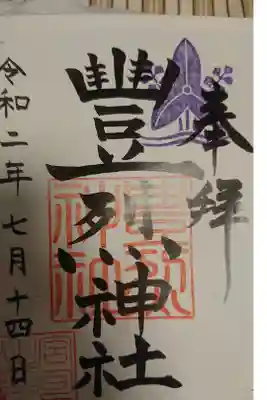 奉拝
豐烈神社
令和二年七月十四日